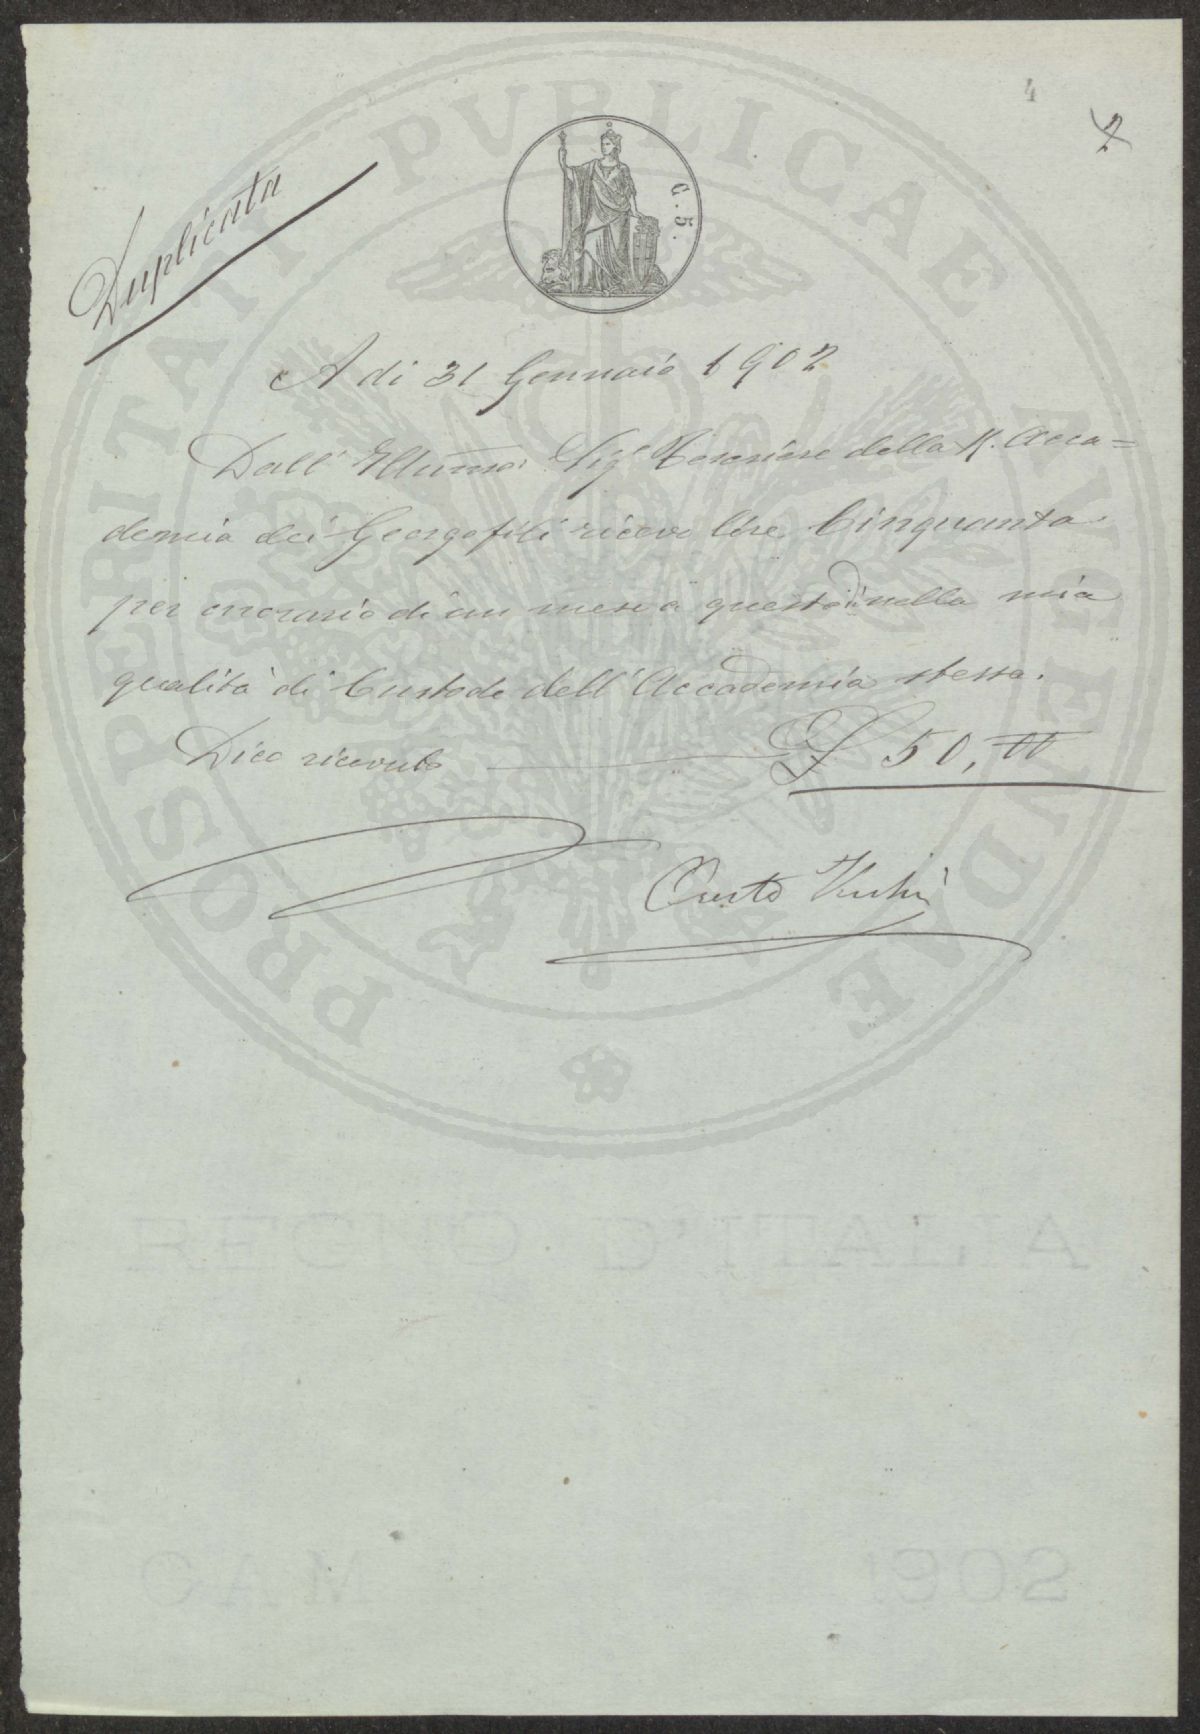 4
2
C. 5.
Duplicata
A di 31 Gennaio 1902
Dall' Illumo. Sigr Tesoriere della R. Acca=
demia dei Georgofili ricevo lire Cinquanta
per onorario di un mese a questo dì nella mia
qualità di Custode dell' Accademia stessa.
Dico ricevute £ 50, 00
Oreste
PROSPERITATI PVBLICAE AVGENDAE
REGNO D'ITALIA
1902